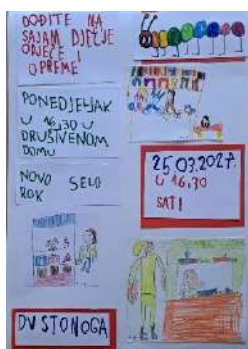 DOĐITE NA
SAJAM DJEČJE
ODJEĆE I
OPREME!
PONEDJELJAK
U 16,30 U
DRUŠTVENOM
DOMU
NOVO SELO
ROK
25.03.2024.
U 16,30
SATI
DV STONOGA